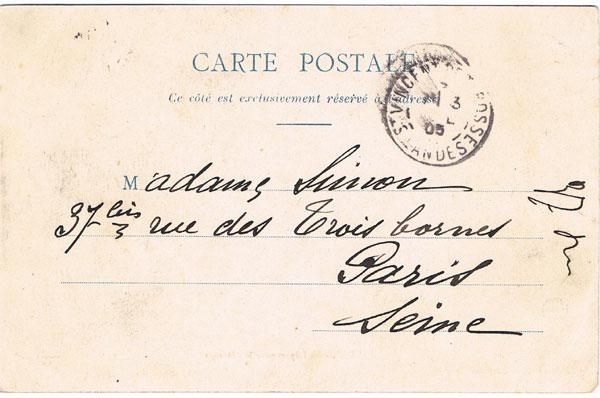 CARTE POSTALE
Ce côté est exclusivement réservé à l'adresse
ST VINCENT DE TYROSSE
3
05
LANDES
Madame Simon
37 bis rue des Trois bornes
Paris
Seine